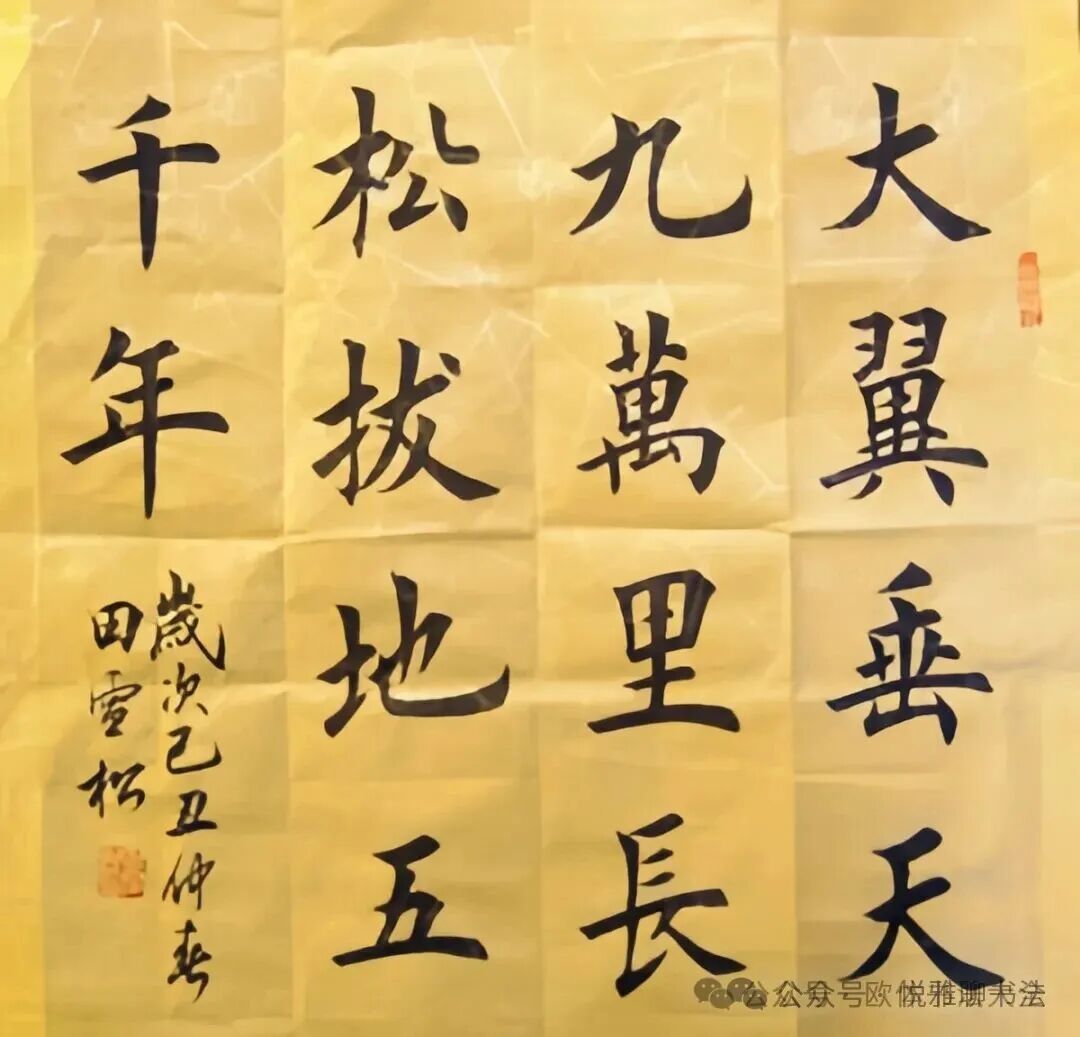 大翼垂天
九萬里長
松拔地五
千年
歲次己丑仲春
田雪松
公众号欧悦雅聊书法